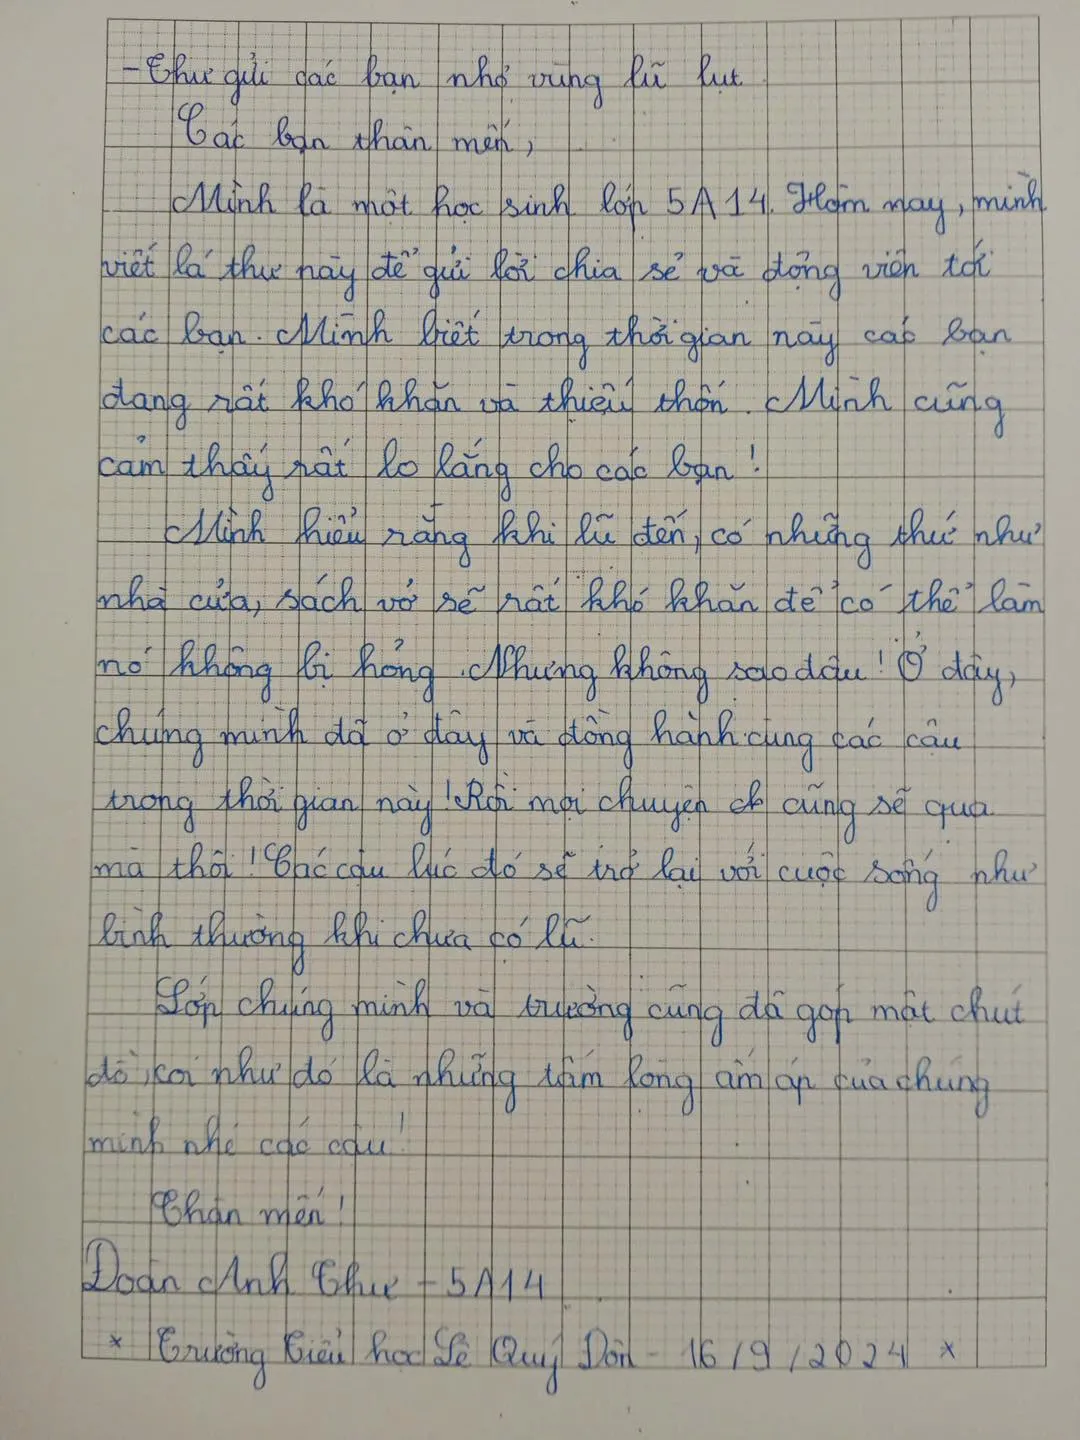 - Thư gửi các bạn nhỏ vùng lũ lụt
Các bạn thân mến,
Mình là một học sinh lớp 5A14. Hôm nay, mình
viết lá thư này để gửi lời chia sẻ và động viên tới
các bạn. Mình biết trong thời gian này các bạn
đang rất khó khăn và thiếu thốn. Mình cũng
cảm thấy rất lo lắng cho các bạn!
Mình hiểu rằng khi lũ đến, có những thứ như
nhà cửa, sách vở sẽ rất khó khăn để có thể làm
nó không bị hỏng. Nhưng không sao đâu! Ở đây,
chúng mình đã ở đây và đồng hành cùng các cậu
trong thời gian này! Rồi mọi chuyện cũng sẽ qua
mà thôi! Các cậu lúc đó sẽ trở lại với cuộc sống như
bình thường khi chưa có lũ.
Lớp chúng mình và trường cũng đã góp một chút
đồ, coi như đó là những tấm lòng ấm áp của chúng
mình nhé các cậu!
Thân mến!
Đoàn Anh Thư - 5A14
* Trường Tiểu học Lê Quý Đôn - 16/9/2024 *